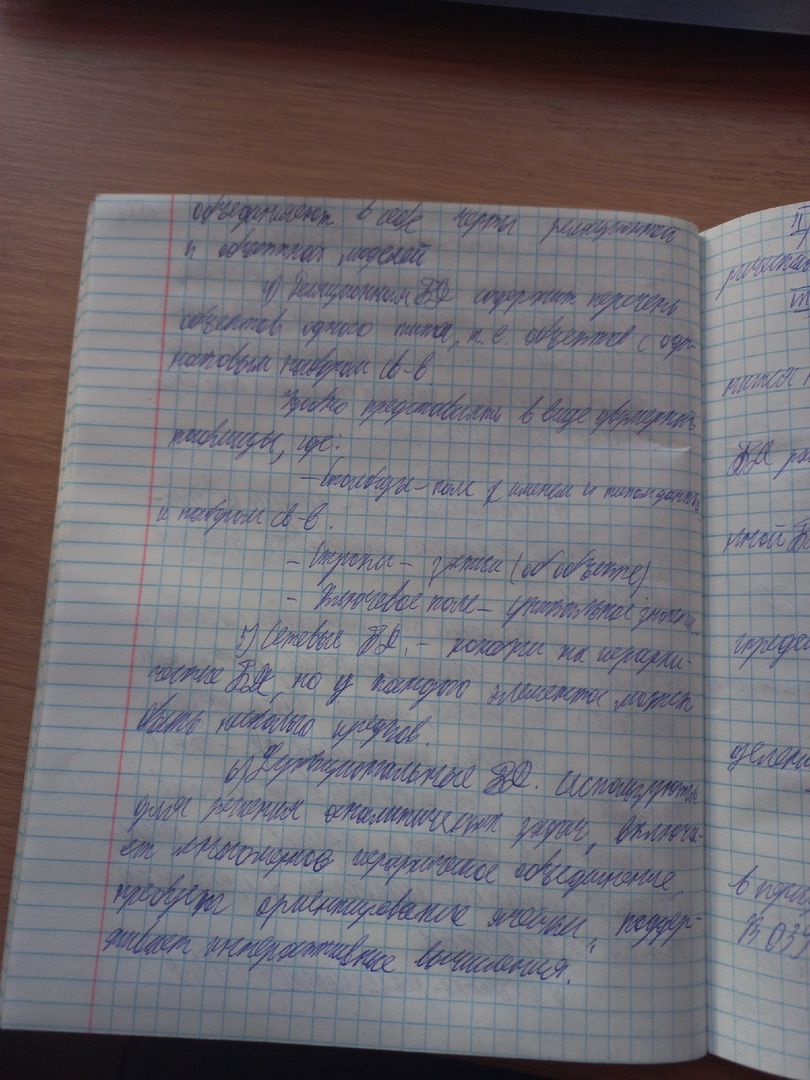 объединяют в себе черты реляционной
и объектных моделей
4) Реляционная БД содержит перечень
объектов одного типа, т.е. объектов с оди-
наковым набором св-в
представлять в виде двумерной
таблицы, где:
- Столбцы - поле с именем и типом данных
и набором св-в.
- Строки - записи (об объекте)
- Ключевое поле -
5) Сетевые БД. - похожи на иерархи-
ческие БД, но у каждого элемента может
быть несколько предков.
6) Функциональные БД. используются
для решения аналитических задач, включа-
ет многомерное иерархическое объединение,
ориентирование ячейки, поддер-
живает интерактивные вычисления.
II
VII
БД
в